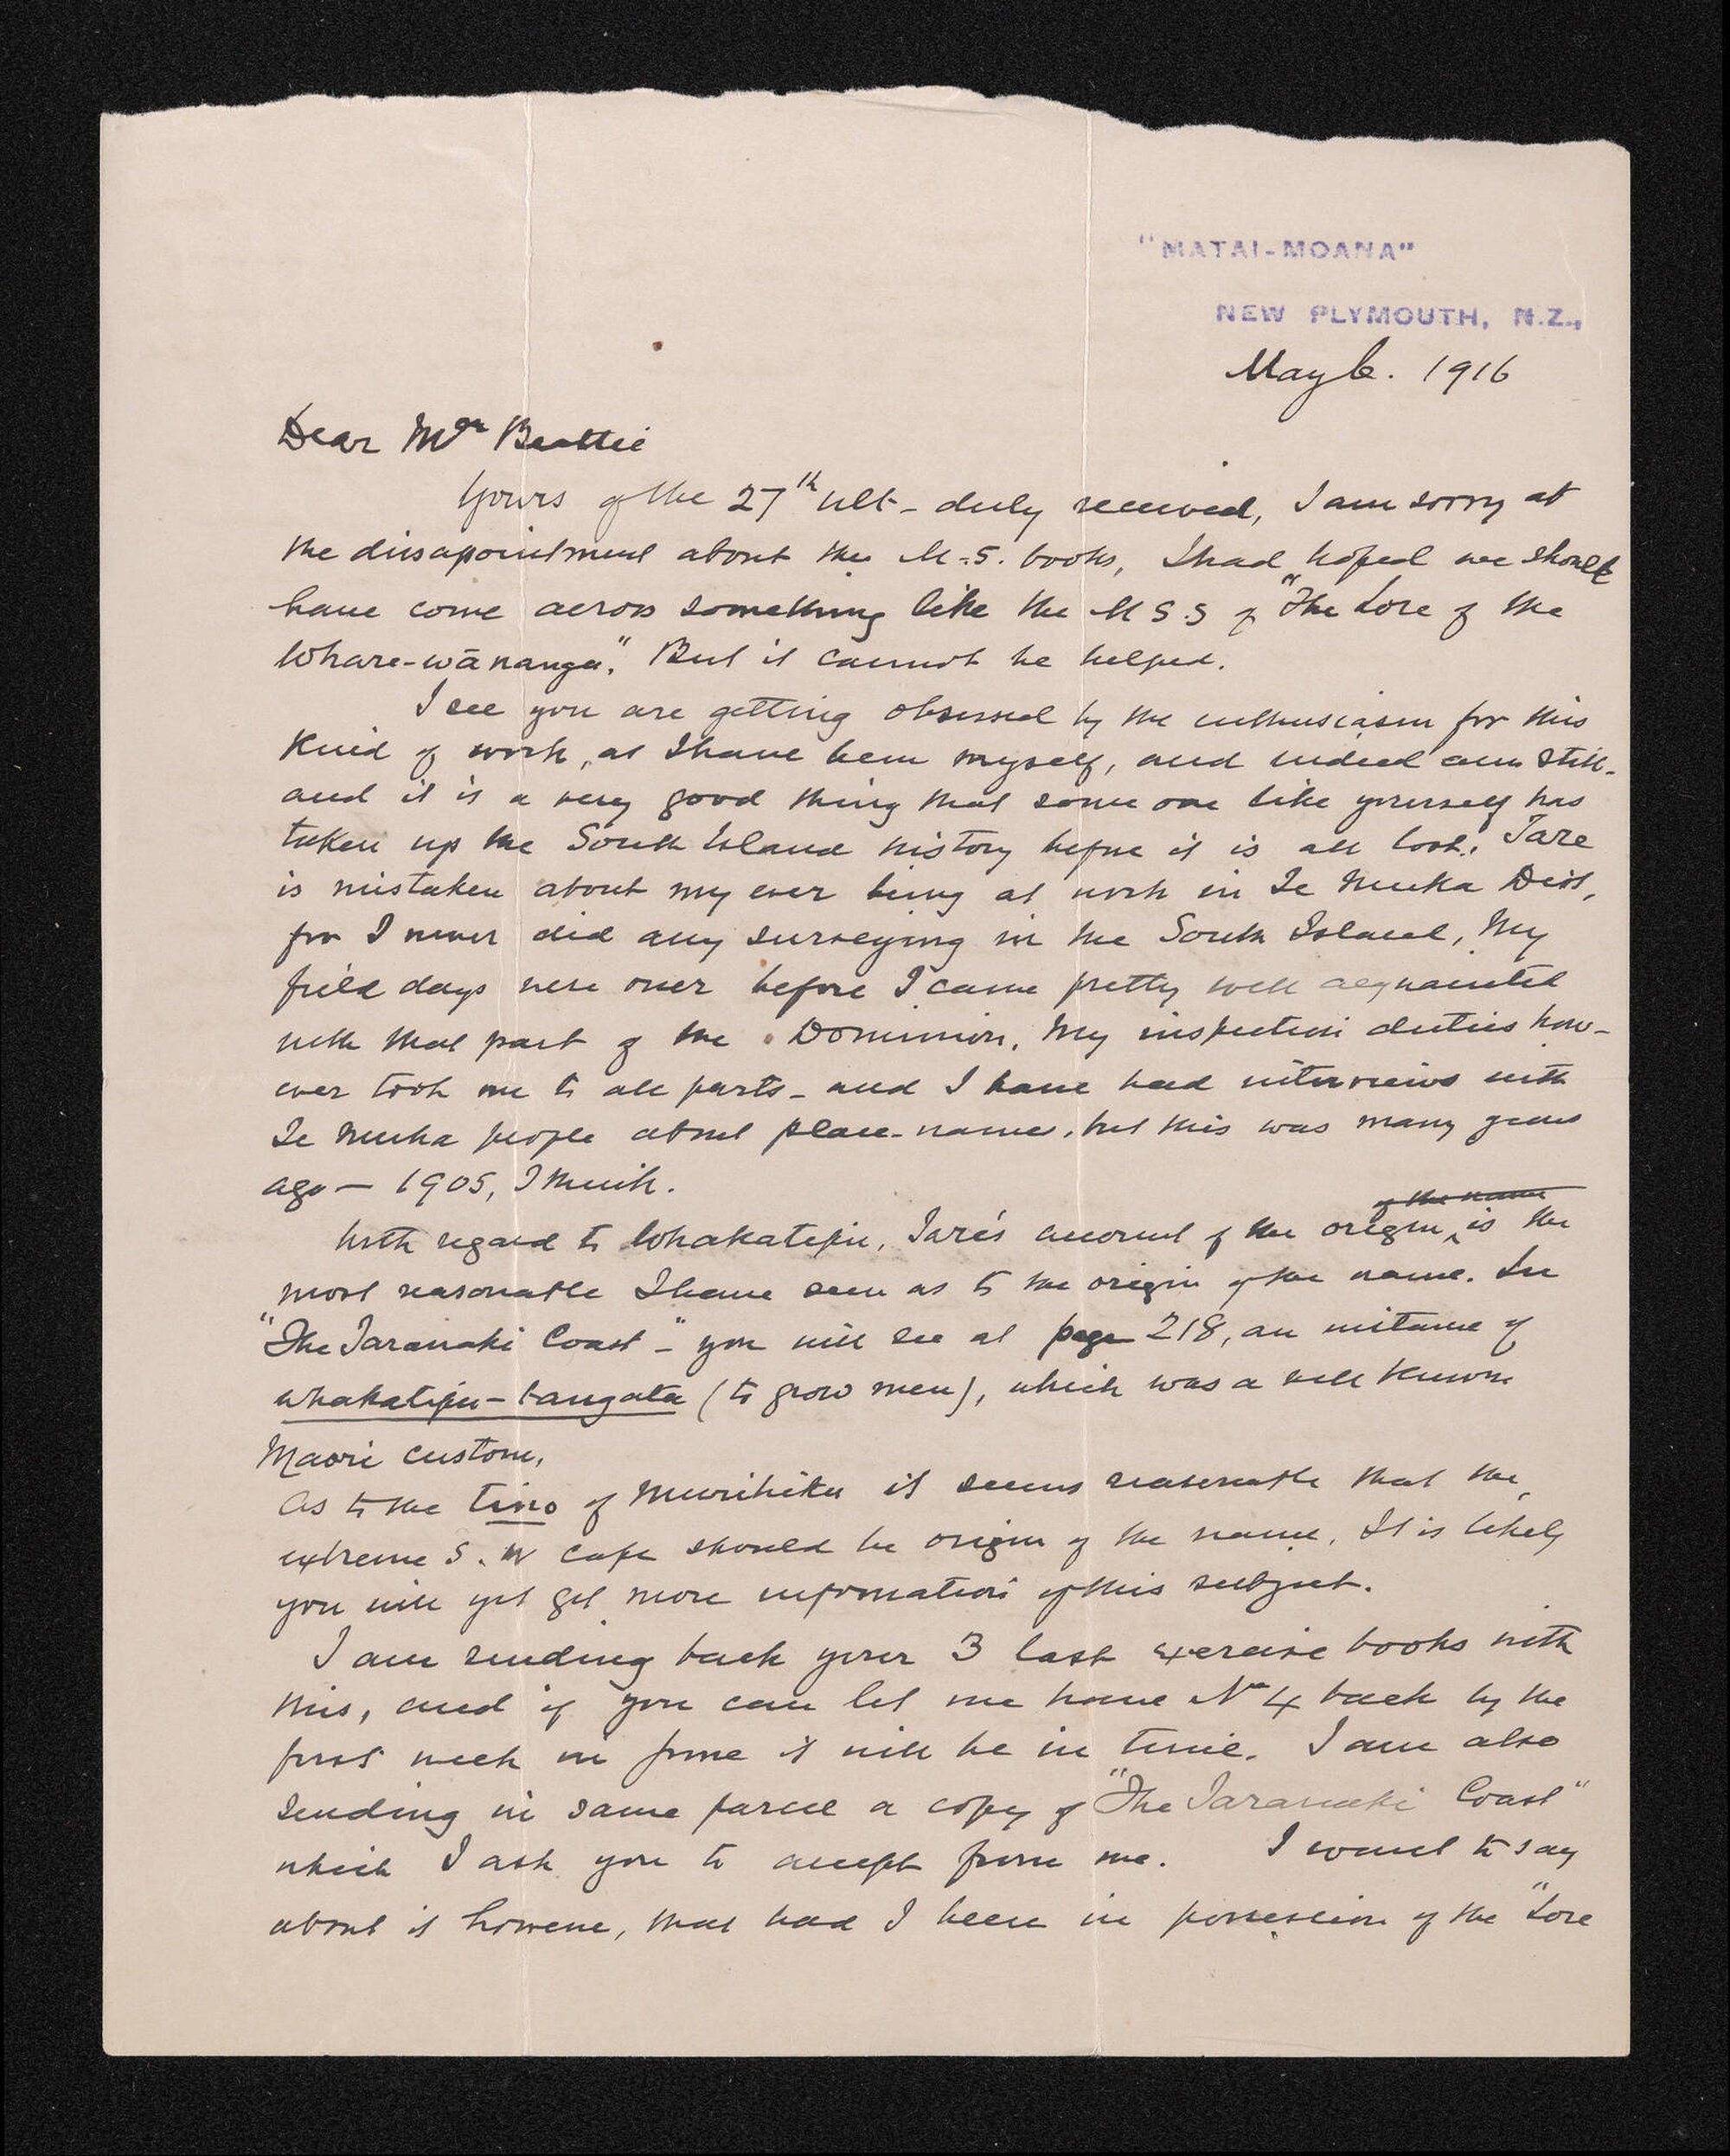 "MATAI-MOANA"
NEW PLYMOUTH, N.Z.,
May 6. 1916
Dear Mr Beattie
Yours of the 27th ult- duly received, I am sorry at
the dissapointment about the M.S. books, I had hoped we should
have come across something like the M S.S of "The Lore of the
Whare-wānanga". But it cannot be helped.
I see you are getting obsessed by the enthusiasm for this
kind of work, as I have been myself, and indeed am still-
and it is a very good thing that some one like yourself has
taken up the South Island history before it is all lost. Tare
is mistaken about my ever being at work in Te Muka Dist,
for I never did any surveying in the South Island, My
field days were over before I came pretty well acquainted
with that part of the Dominion. My inspection duties how-
ever took me to all parts - and I have had interviews with
Te Muka people about place-names, but this was many years
ago — 1905, I think.
With regard to Whakatipu, Tare's account of the origin of the name is the
most reasonable I have seen as to the origin of the name. In
"The Taranaki Coast -" you will see at page 218, an instance of
whakatipu-tangata (to grow men), which was a well known
Maori custom.
As to the tino of Murihiku it seems reasonable that the
extreme S. W cape should be origin of the name. It is likely
you will yet get more information of this subject.
I am sending back your 3 last exercise books with
this, and if you can let me have No 4 back by the
first week in June it will be in time. I am also
sending in same parcel a copy of "The Taranaki Coast"
which I ask you to accept from me. I want to say
about it however, that had I been in possession of the "Lore